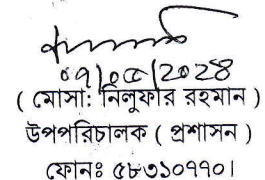 ০৭/০৫/2০২৪
( মোসা: নিলুফার রহমান )
উপপরিচালক ( প্রশাসন )
ফোনঃ ৫৮৩১০৭৭০।